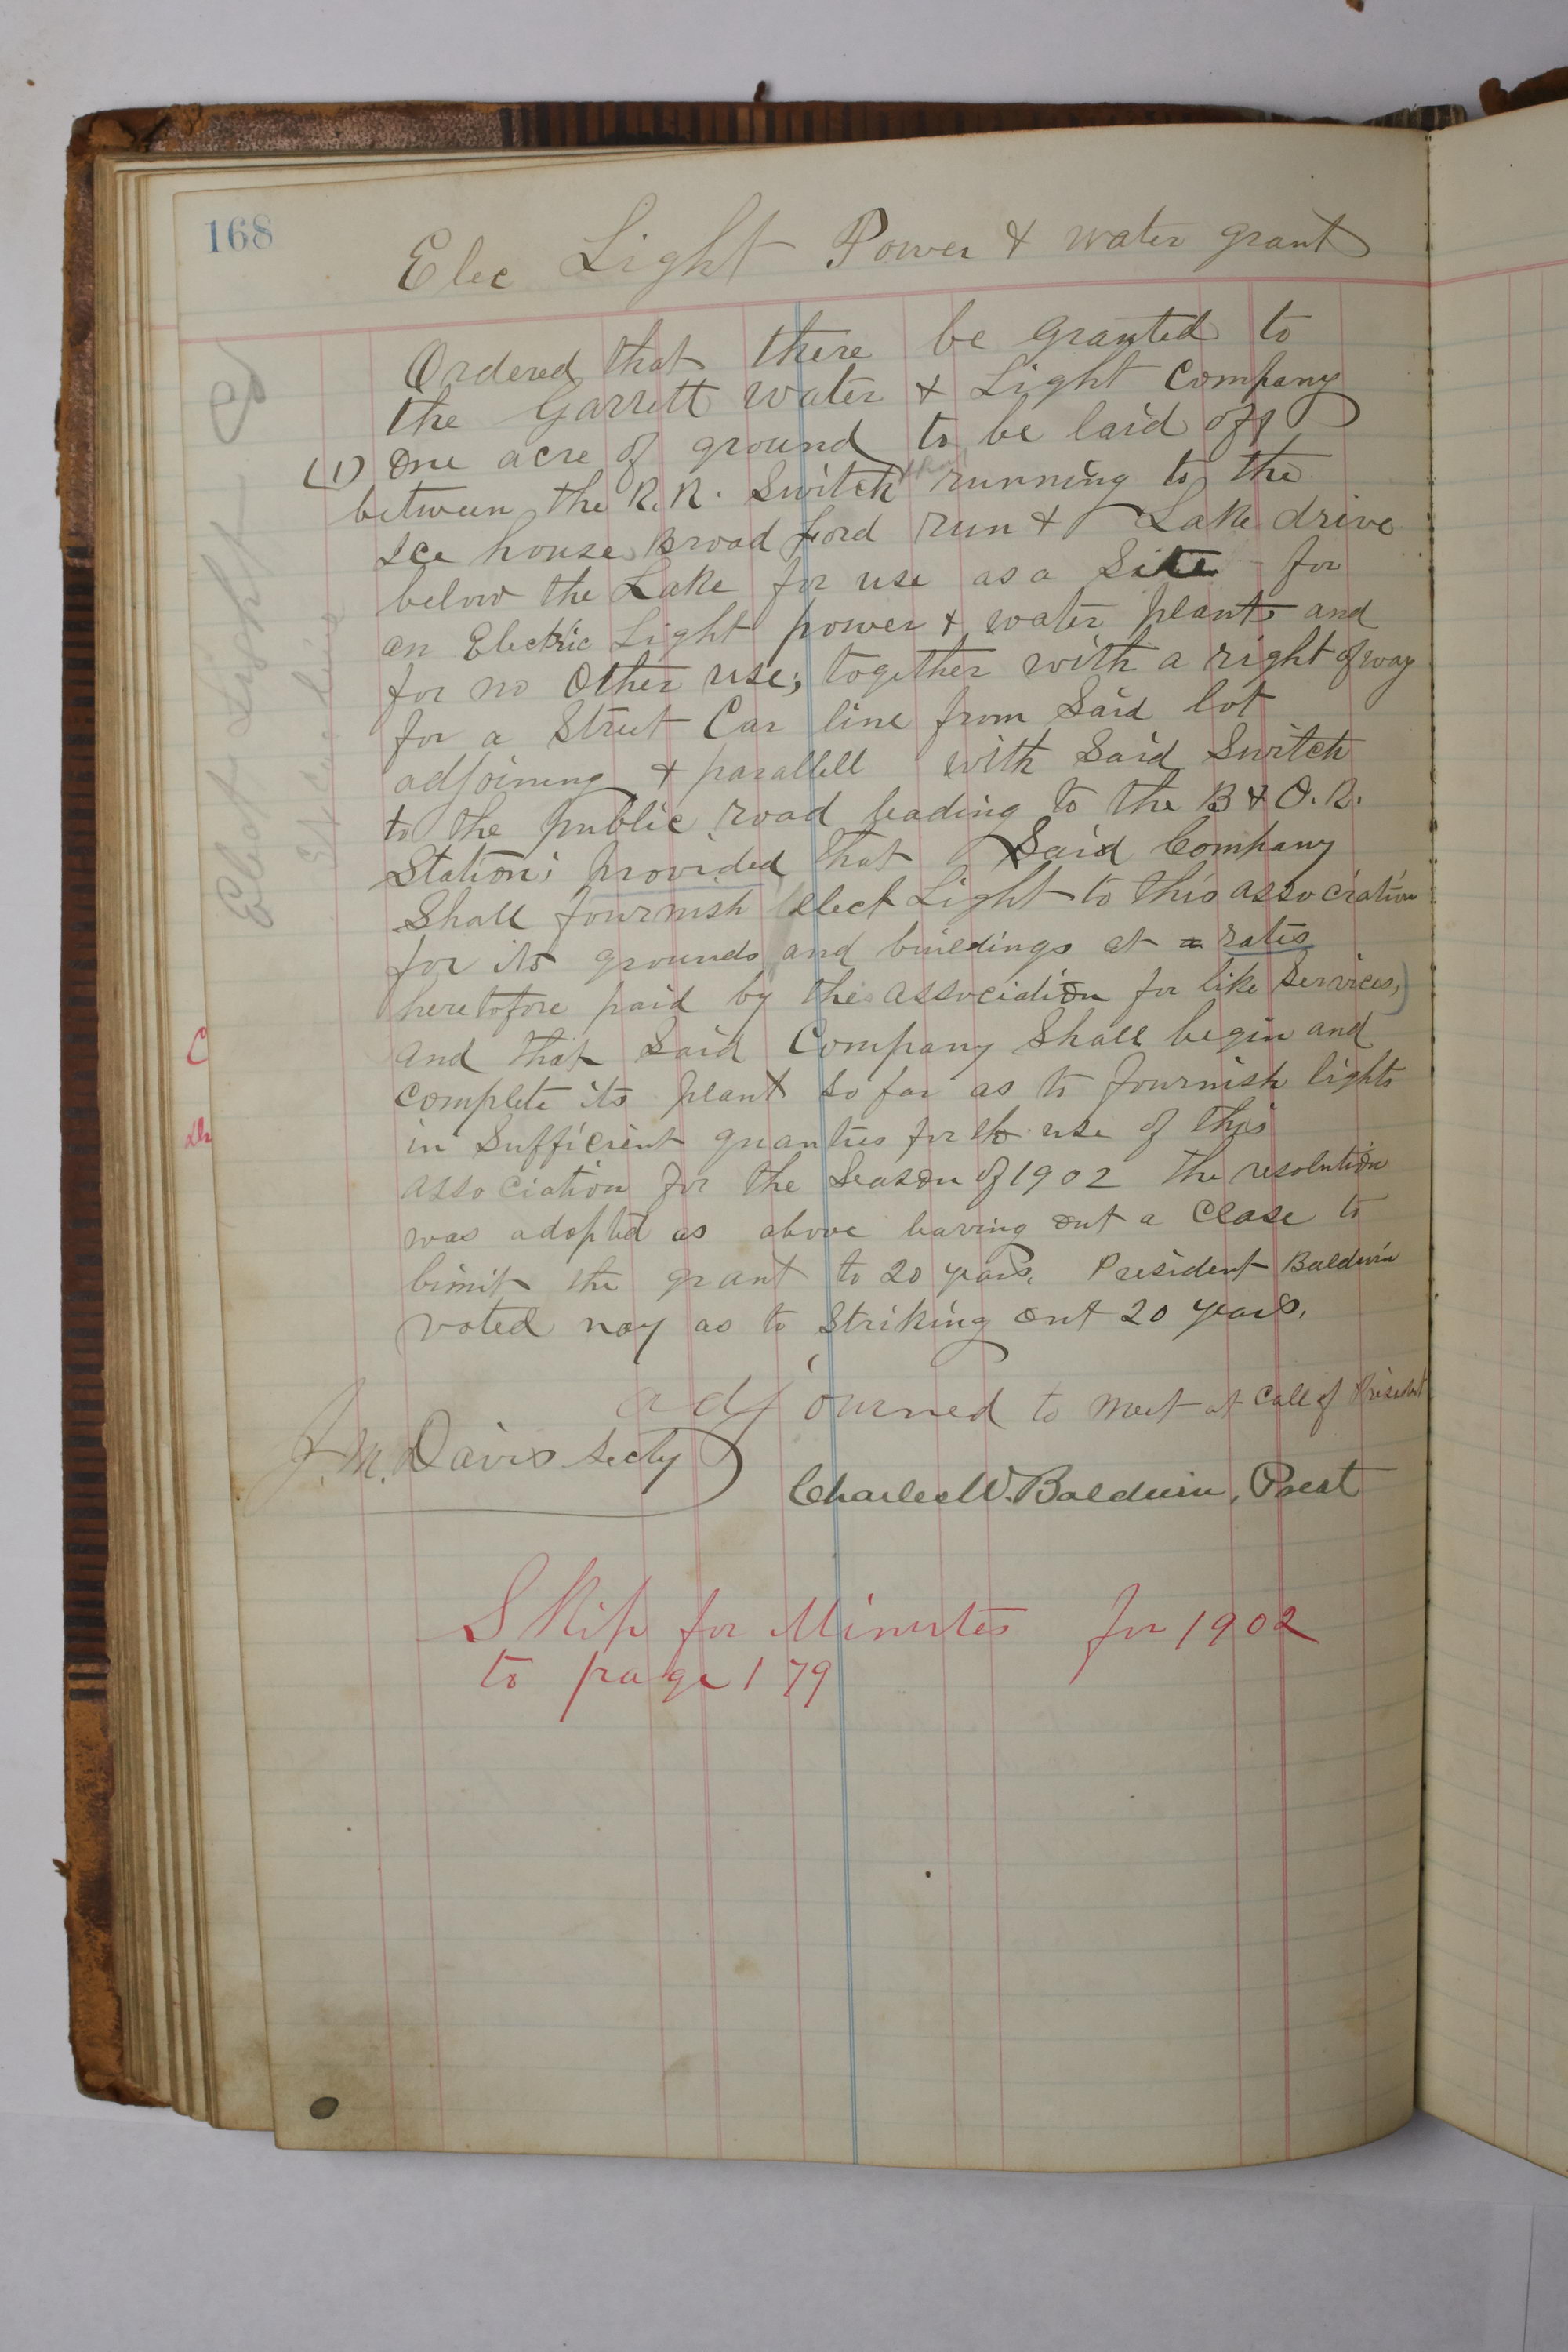 168
Elec Light Power & water grant
Ordered that there be granted to
the Garrett water & Light Company
(1) one acre of ground to be laid off
between the R.R. Switch running to the
Ice house, Broad ford run & Lake drive
below the Lake for use as a Site for
an Electric Light power & water plant and
for no Other use; together with a right of way
for a Street Car line from Said lot
adjoining & parallell with Said Switch
to the public road leading to the B & O. R.
Station; provided that Said Company
Shall fournish elect Light to this association
for its grounds and buildings at a rates
heretofore paid by the association for like Services,)
and that Said Company Shall begin and
complete its plant so far as to fournish lights
in Sufficient quanties for the use of this
association for the Season of 1902 The resolution
was adopted as above leaving out a Clase to
limit the grant to 20 years. President Baldwin
voted nay as to Striking out 20 years.
adjourned to meet at Call of President
J. M. Davis Secty
Charles W. Baldwin, Prest
Skip for Minutes for 1902
to page 179
Elect Light
C
Dr